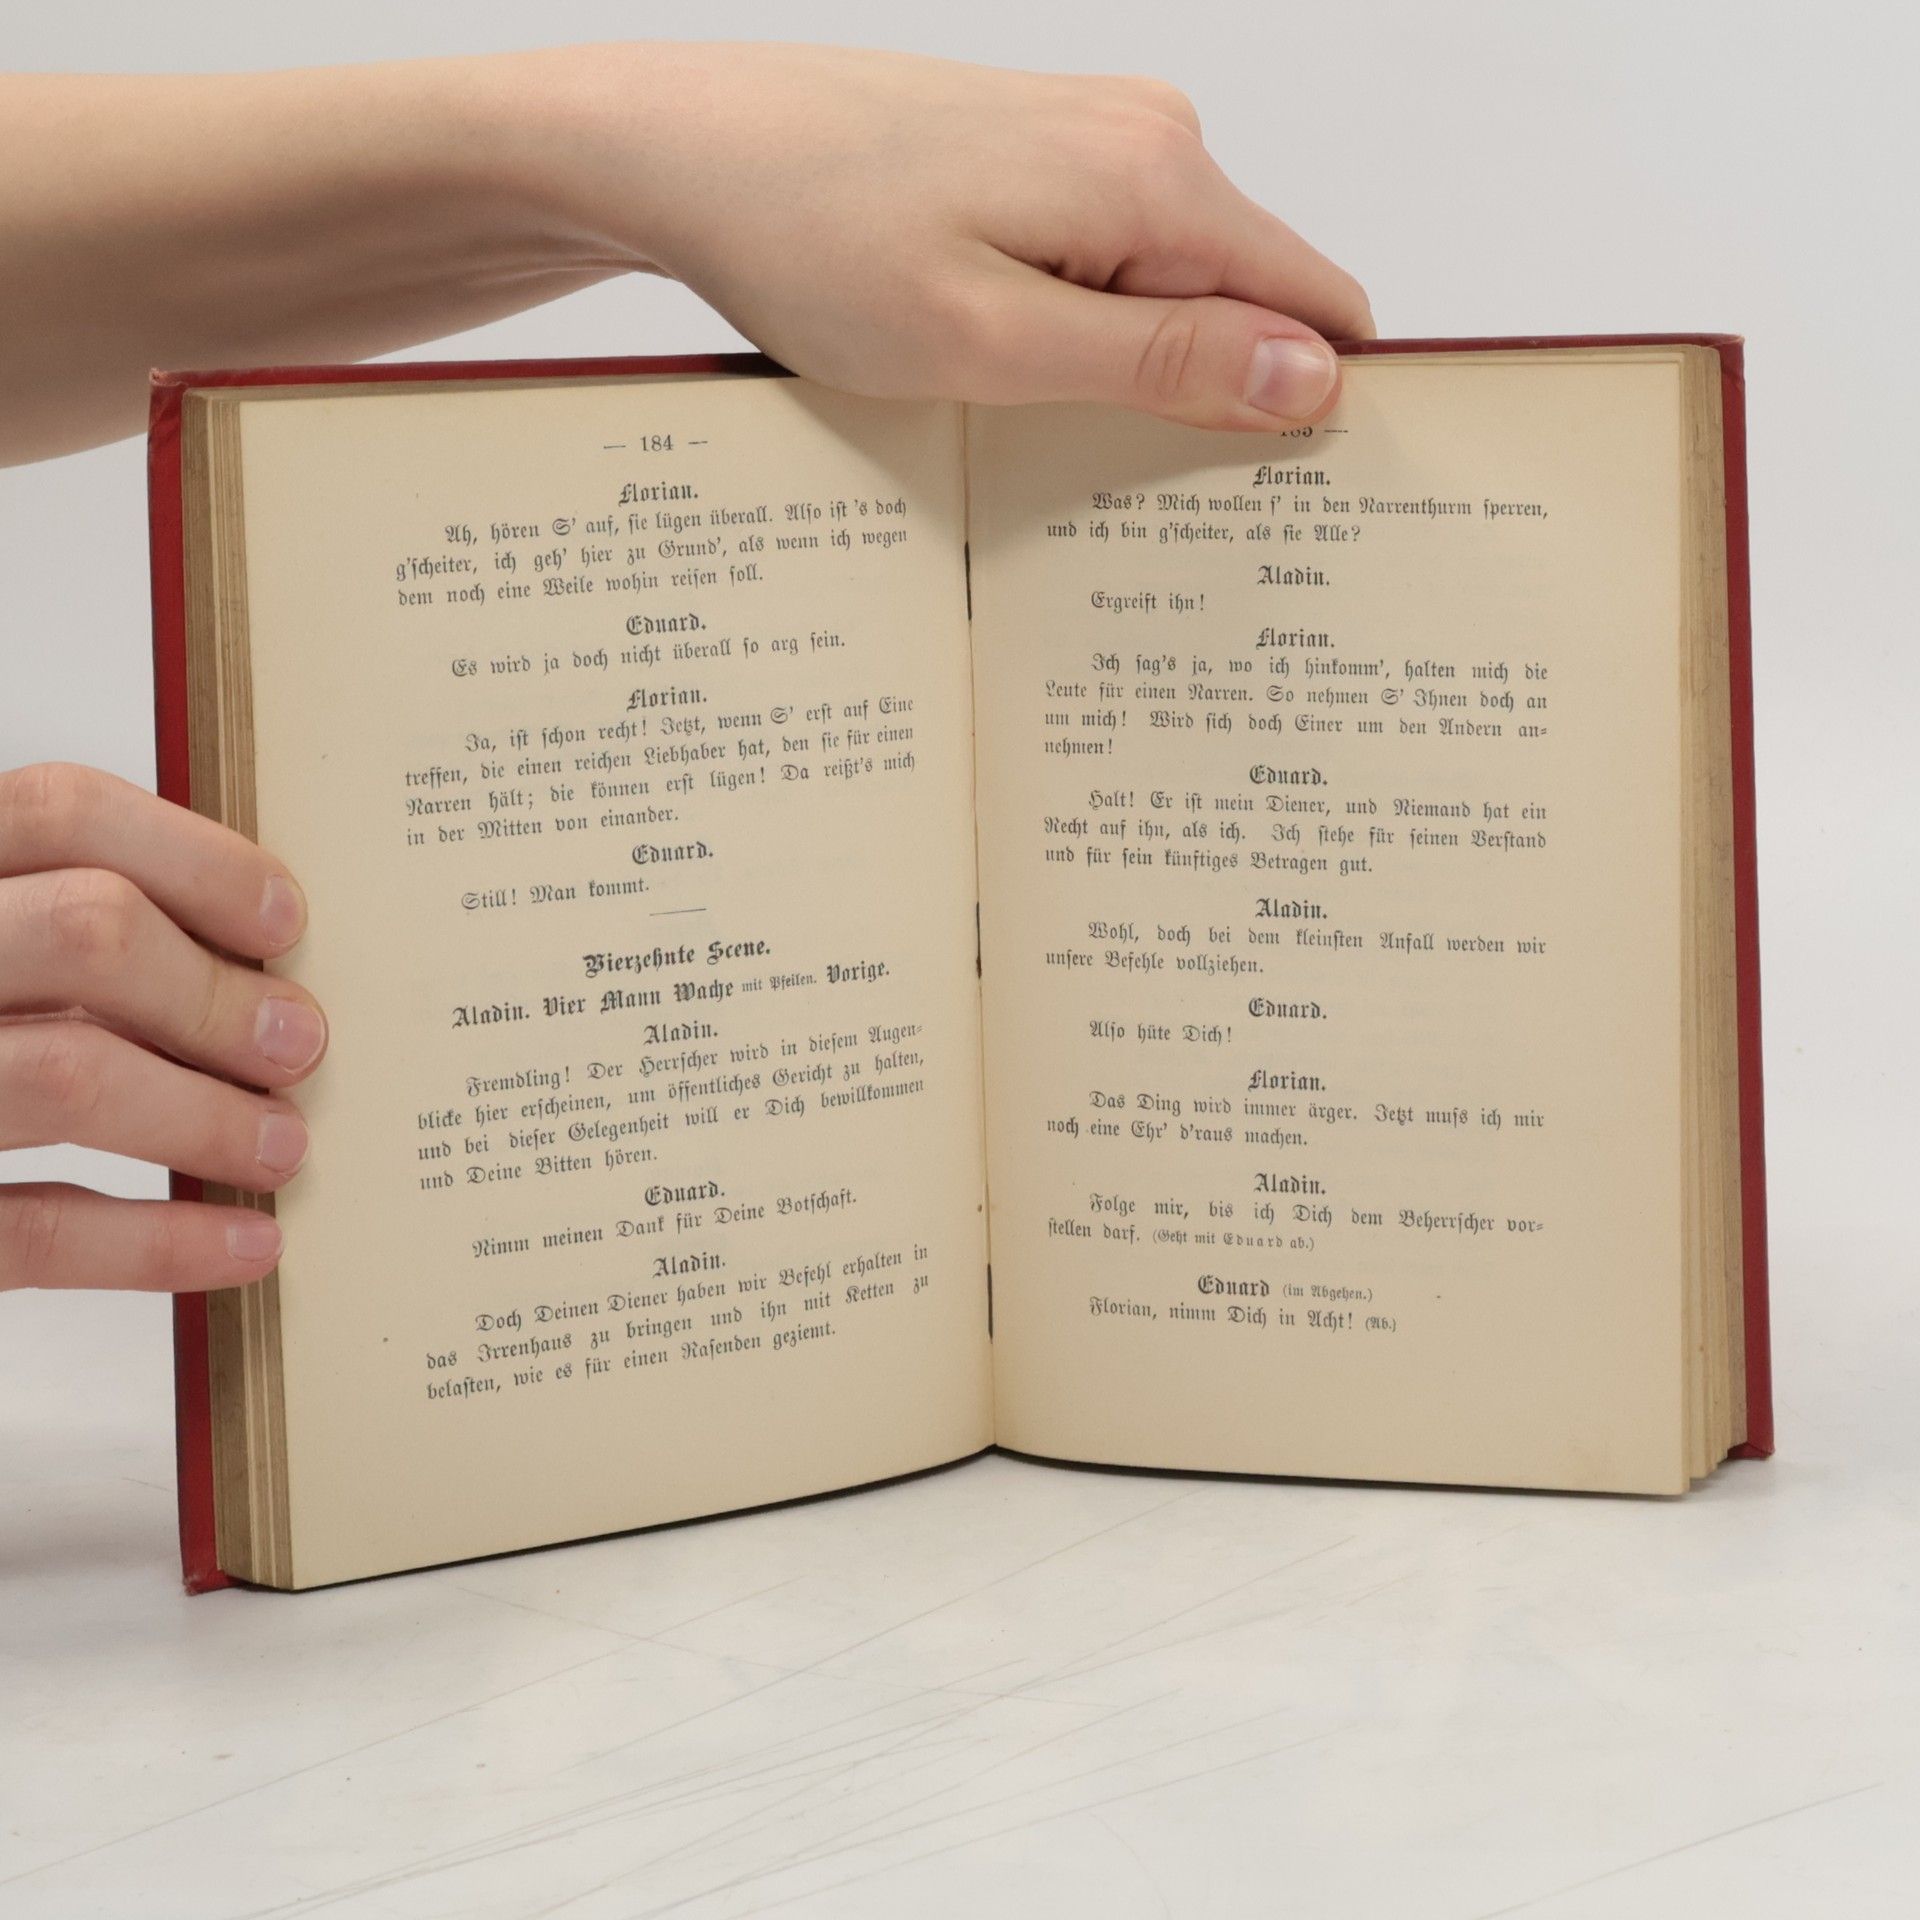 — 184 —
Florian.
Ah, hören S' auf, ſie lügen überall. Alſo iſt 's doch
g'ſcheiter, ich geh' hier zu Grund', als wenn ich wegen
dem noch eine Weile wohin reiſen ſoll.
Eduard.
Es wird ja doch nicht überall ſo arg ſein.
Florian.
Ja, iſt ſchon recht! Jetzt, wenn S' erſt auf Eine
treffen, die einen reichen Liebhaber hat, den ſie für einen
Narren hält; die können erſt lügen! Da reißt's mich
in der Mitten von einander.
Eduard.
Still! Man kommt.
Vierzehnte Scene.
Aladin. Vier Mann Wache mit Pfeilen. Vorige.
Aladin.
Fremdling! Der Herrſcher wird in dieſem Augen-
blicke hier erſcheinen, um öffentliches Gericht zu halten,
und bei dieſer Gelegenheit will er Dich bewillkommen
und Deine Bitten hören.
Eduard.
Nimm meinen Dank für Deine Botſchaft.
Aladin.
Doch Deinen Diener haben wir Befehl erhalten in
das Irrenhaus zu bringen und ihn mit Ketten zu
belaſten, wie es für einen Raſenden geziemt.
185 —
Florian.
Was? Mich wollen ſ' in den Narrenthurm ſperren,
und ich bin g'ſcheiter, als ſie Alle?
Aladin.
Ergreift ihn!
Florian.
Ich ſag's ja, wo ich hinkomm', halten mich die
Leute für einen Narren. So nehmen S' Ihnen doch an
um mich! Wird ſich doch Einer um den Andern an-
nehmen!
Eduard.
Halt! Er iſt mein Diener, und Niemand hat ein
Recht auf ihn, als ich. Ich ſtehe für ſeinen Verſtand
und für ſein künftiges Betragen gut.
Aladin.
Wohl, doch bei dem kleinſten Anfall werden wir
unſere Befehle vollziehen.
Eduard.
Alſo hüte Dich!
Florian.
Das Ding wird immer ärger. Jetzt muſs ich mir
noch eine Ehr' d'raus machen.
Aladin.
Folge mir, bis ich Dich dem Beherrſcher vor-
ſtellen darf. (Geht mit Eduard ab.)
Eduard (im Abgehen.)
Florian, nimm Dich in Acht! (Ab.)